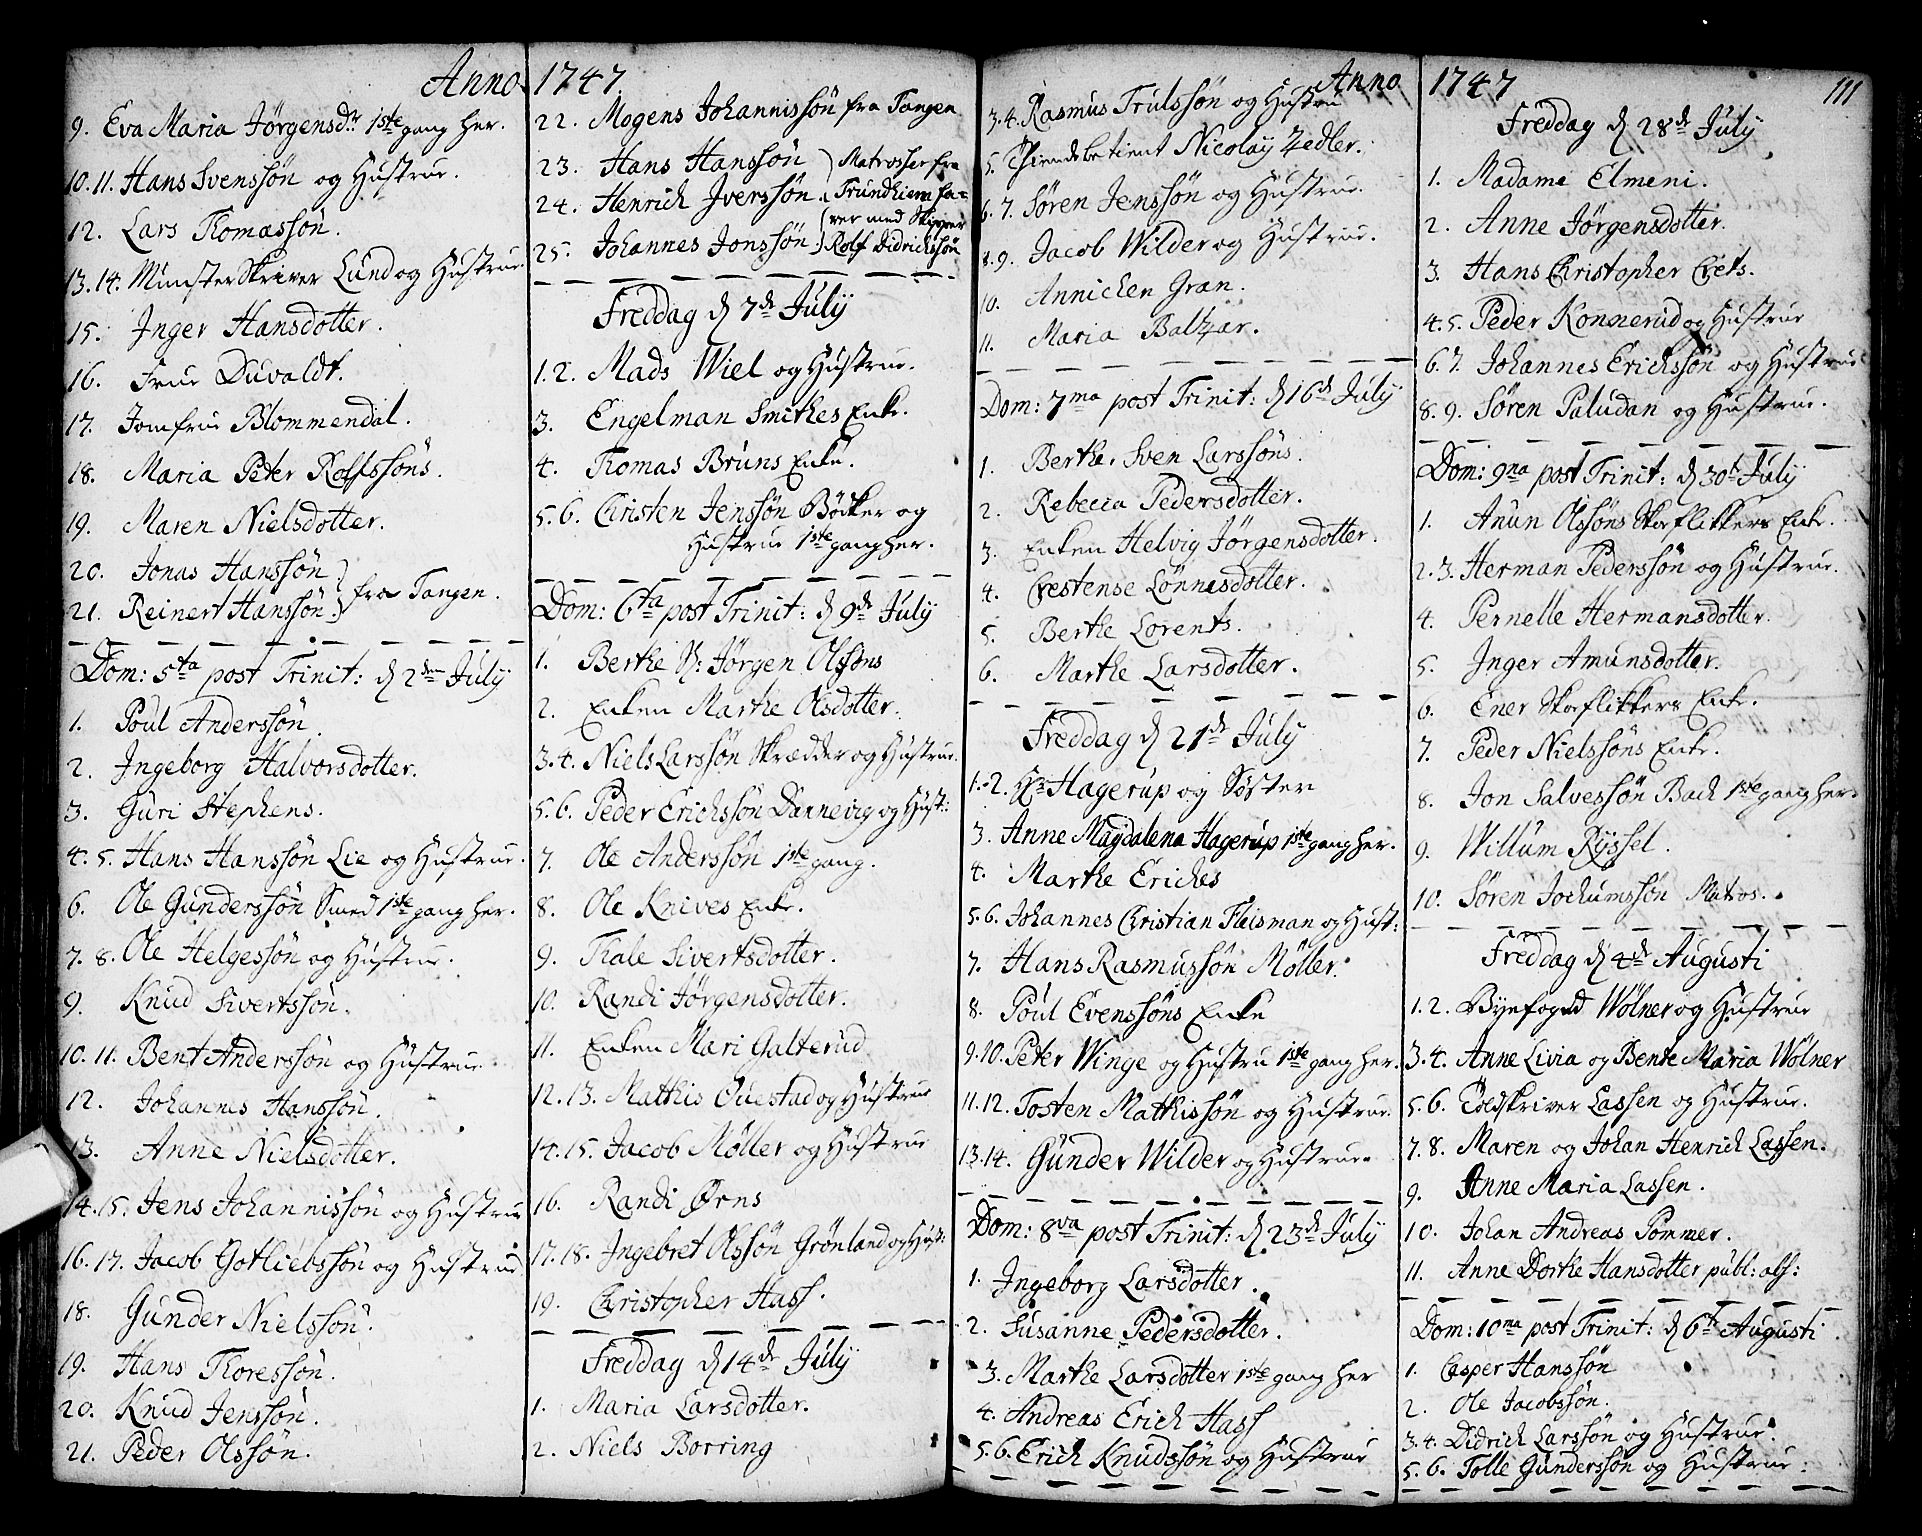 Anno 1747
9. Eva Maria Jörgensdr 1ste gang her.
10. 11. Hans Svenssön og Hustrue.
12. Lars Thomassön.
13. 14. Münster Skriver Lund og Hustrue.
15. Inger Hansdotter.
16. Frue Duvaldt.
17. Jomfrue Blommendal.
18. Maria Peter Rolfssöns.
19. Maren Nielsdotter.
20. Jonas Hanssön
21. Reinert Hanssön. } fra Tangen.
Dom: 5ta post Trinit: d 2den July
1. Poul Anderssön.
2. Ingeborg Halvorsdotter.
3. Guri Stephens.
4. 5. Hans Hanssön Lie og Hustrue.
6. Ole Gunderssön Smed 1ste gang her.
7. 8. Ole Helgessön og Hustrue.
9. Knud Sivertssön.
10. 11. Bent Anderssön og Hustrue
12. Johannes Hanssön.
13. Anne Nielsdotter.
14. 15. Jens Johannissön og Hustrue
16. 17. Jacob Gotliebssön og Hustrue
18. Gunder Nielssön.
19. Hans Thoressön.
20. Knud Jenssön.
21. Peder Olssön.
22. Mogens Johannissön fra Tangen
23. Hans Hanssön } Matrosser fra
24. Henrich Iverssön } Trundhiem fa-
ver med Skipper
25. Johannes Jonssön } Rolf Didrichssön
Freddag d 7de July
1. 2. Mads Wiel og Hustrue.
3. Engelman Smithes Enke.
4. Thomas Bruns Enke.
5. 6. Christen Jenssön Böcker og
Hustrue 1ste gang her.
Dom: 6ta post Trinit: d 9de July
1. Berthe S: Jörgen Olssöns
2. Enken Marthe Olsdotter.
3. 4. Niels Larssön Skrædder og Hustrue.
5. 6. Peder Erichssön Dannevig og Hust:
7. Ole Anderssön 1ste gang.
8. Ole Knives Enke.
9. Thale Sivertsdotter.
10. Randi Jörgensdotter.
11. Enken Mari Galterud
12. 13. Mathis Ouestad og Hustrue
14. 15. Jacob Möller og Hustrue
16. Randi Örns
17. 18. Ingebret Olssön Grönland og Hust:
19. Christopher Hass.
Freddag d 14de July
1. Maria Larsdotter.
2. Niels Borring
Anno 1747
111
3. 4. Rasmus Trulssön og Hustru
5. Thiendebetient Nicolay Zedler.
6. 7. Sören Jenssön og Hustrue.
8. 9. Jacob Wilder og Hustrue.
10. Annichen Gran.
11. Maria Baltzar.
Dom: 7ma post Trinit: d 16de July
1. Berthe Sven Larssöns.
2. Rebecca Pedersdotter.
3. Enken Helvig Jörgensdotter.
4. Chrestense Lönnesdotter.
5. Berthe Lorents.
6. Marthe Larsdotter.
Freddag d 21de July
1. 2. Hr Hagerup og Söster
3. Anne Magdalena Hagerup 1ste gang her.
4. Marthe Eriches
5. 6. Johannes Christian Fleisman og Hust:
7. Hans Rasmussön Möller.
8. Poul Evenssöns Enke
9. 10. Peter Winge og Hustru 1ste gang her.
11. 12. Tosten Mathissön og Hustrue.
13. 14. Gunder Wilder og Hustrue
Dom: 8va post Trinit: d 23de July
1. Ingeborg Larsdotter.
2. Susanne Pedersdotter.
3. Marthe Larsdotter 1ste gang her
4. Andreas Erich Hass
5. 6. Erich Knudssön og Hustrue
Freddag d 28de July
1. Madame Elmeni.
2. Anne Jörgensdotter.
3. Hans Christopher Crets.
4. 5. Peder Konnerud og Hustrue
6. 7. Johannes Erichssön og Hustrue
8. 9. Sören Paludan og Hustrue.
Dom: 9na post Trinit: d 30te July
1. Anun Olssöns Skoeflikkers Enke.
2. 3. Herman Pederssön og Hustrue.
4. Pernelle Hermansdotter.
5. Inger Amunsdotter.
6. Ener Skoeflikkers Enke.
7. Peder Nielssöns Enke.
8. Jon Salvessön Bach 1ste gang her.
9. Willum Ryssel.
10. Sören Jochumssön Matros.
Freddag d 4de Augusti
1. 2. Byefoged Wölner og Hustrue
3. 4. Anne Livia og Bente Maria Wölner
5. 6. Toldskriver Lassen og Hustrue.
7. 8. Maren og Johan Henrich Lassen.
9. Anne Maria Lassen.
10. Johan Andreas Pommer.
11. Anne Dorthe Hansdotter publ: abs:
Dom: 10ma post Trinit: d 6te Augusti
1. Casper Hanssön
2. Ole Jacobssön.
3. 4. Didrich Larssön og Hustrue.
5. 6. Tolle Gunderssön og Hustrue.